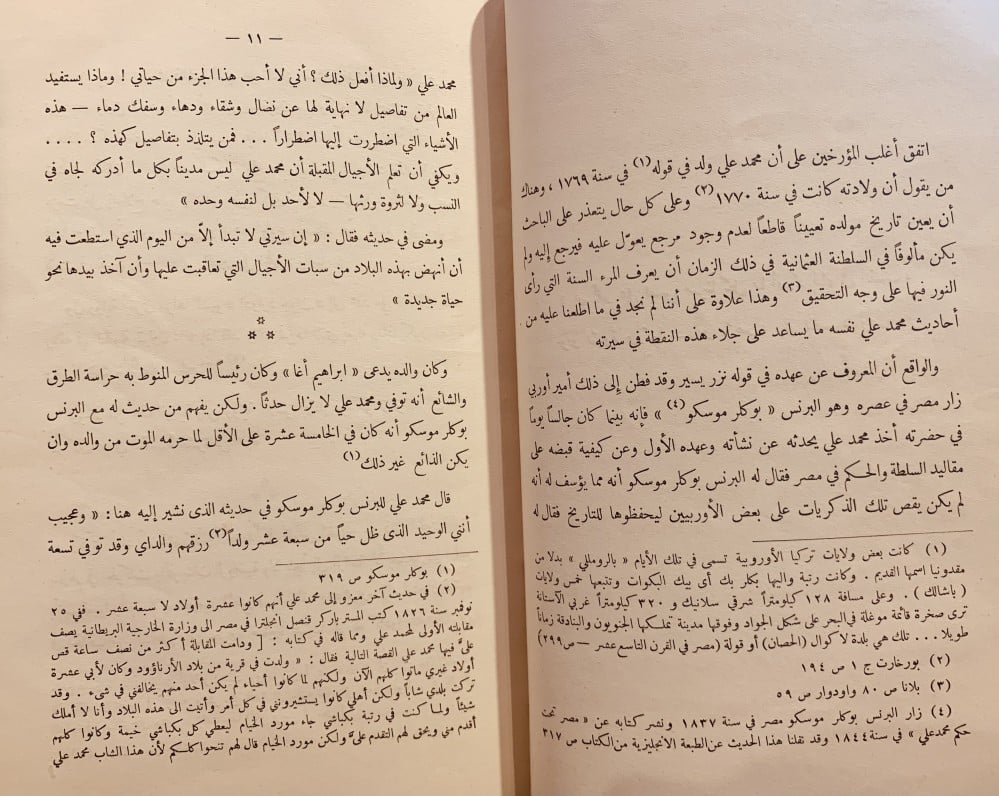 اتفق أغلب المؤرخين على أن محمد علي ولد في قوله(١) في سنة ١٧٦٩ ، وهناك
من يقول أن ولادته كانت في سنة ١٧٧٠(٢) وعلى كل حال يتعذر على الباحث
أن يعين تاريخ مولده تعييناً قاطعاً لعدم وجود مرجع يعوّل عليه فيرجع إليه ولم
يكن مألوفاً في السلطنة العثمانية في ذلك الزمان أن يعرف المرء السنة التي رأى
النور فيها على وجه التحقيق(٣) وهذا علاوة على أننا لم نجد في ما اطلعنا عليه من
أحاديث محمد علي نفسه ما يساعد على جلاء هذه النقطة في سيرته
والواقع أن المعروف عن عهده في قوله نزر يسير وقد فطن إلى ذلك أمير أوربي
زار مصر في عصره وهو البرنس « بوكلر موسكو(٤) » فإنه بينما كان جالساً يوماً
في حضرته أخذ محمد علي يحدثه عن نشأته وعهده الأول وعن كيفية قبضه على
مقاليد السلطة والحكم في مصر فقال له البرنس بوكلر موسكو أنه مما يؤسف له أنه
لم يكن يقص تلك الذكريات على بعض الأوربيين ليحفظوها للتاريخ فقال له
(١) كانت بعض ولايات تركيا الأوروبية تسمى في تلك الأيام « بالروملي » بدلا من
مقدونيا اسمها القديم . وكانت رتبة واليها بكلر بك أي بيك البكوات وتتبعها خمس ولايات
( باشالك ) . وعلى مسافة ١٢٨ كيلومتراً شرقي سلانيك و ٣٢٠ كيلومتراً غربي الآستانة
ترى صخرة قائمة موغلة في البحر على شكل الجواد وفوقها مدينة تملكها الجنويون والبنادقة زماناً
طويلا ... تلك هي بلدة لاكوال (الحصان) أو قولة (مصر في القرن التاسع عشر – ص ٢٩٩)
(٢) بورخارت ج ١ ص ١٩٤
(٣) بلانا ص ٨٠ واودوار ص ٥٩
(٤) زار البرنس بوكلر موسكو مصر في سنة ١٨٣٧ ونشر كتابه عن « مصر تحت
حكم محمد علي » في سنة ١٨٤٤ وقد نقلنا هذا الحديث عن الطبعة الانجليزية من الكتاب ص ٣١٧
— ١١ —
محمد علي « ولماذا أفعل ذلك ؟ أني لا أحب هذا الجزء من حياتي ! وماذا يستفيد
العالم من تفاصيل لا نهاية لها عن نضال وشقاء ودهاء وسفك دماء — هذه
الأشياء التي اضطررت إليها اضطراراً ... فمن يتلذذ بتفاصيل كهذه ؟ ....
ويكفي أن تعلم الأجيال المقبلة أن محمد علي ليس مديناً بكل ما أدركه لجاه في
النسب ولا لثروة ورثها — لا لأحد بل لنفسه وحده »
ومضى في حديثه فقال : « إن سيرتي لا تبدأ إلاّ من اليوم الذي استطعت فيه
أن أنهض بهذه البلاد من سبات الأجيال التي تعاقبت عليها وأن آخذ بيدها نحو
حياة جديدة »
وكان والده يدعى « ابراهيم أغا » وكان رئيساً للحرس المنوط به حراسة الطرق
والشائع أنه توفي ومحمد علي لا يزال حدثاً . ولكن يفهم من حديث له مع البرنس
بوكلر موسكو أنه كان في الخامسة عشرة على الأقل لما حرمه الموت من والده وان
يكن الذائع غير ذلك(١)
قال محمد علي للبرنس بوكلر موسكو في حديثه الذى نشير إليه هنا : « وعجيب
أنني الوحيد الذى ظل حياً من سبعة عشر ولداً(٢) رزقهم والداي وقد توفي تسعة
(١) بوكلر موسكو ص ٣١٩
(٢) في حديث آخر معزو إلى محمد علي أنهم كانوا عشرة أولاد لا سبعة عشر . ففي ٢٥
نوفبر سنة ١٨٢٦ كتب المستر باركر قنصل انجلترا في مصر الى وزارة الخارجية البريطانية يصف
مقابلته الأولى لمحمد علي ومما قاله في كتابه : [ ودامت المقابلة أكثر من نصف ساعة قص
علىّ فيها محمد علي القصة التالية فقال : « ولدت في قرية من بلاد الأرناؤود وكان لأبي عشرة
أولاد غيري ماتوا كلهم الآن ولكنهم لما كانوا أحياء لم يكن أحد منهم يخالفني في شيء . وقد
تركت بلدي شاباً ولكن أهلي كانوا يستشيرونني في كل أمر وأتيت الى هذه البلاد وأنا لا أملك
شيئاً ولما كنت في رتبة بكباشي جاء مورد الخيام ليعطي كل بكباشي خيمة وكانوا كلهم
أقدم مني ويحق لهم التقدم علىّ ولكن مورد الخيام قال لهم تنحوا كلكم لأن هذا الشاب محمد علي